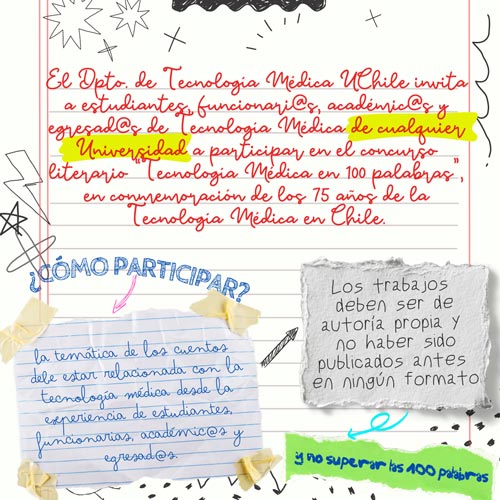 El Dpto. de Tecnología Médica UChile invita
a estudiantes, funcionari@s, académic@s y
egresad@s de Tecnología Médica de cualquier
Universidad a participar en el concurso
literario "Tecnología Médica en 100 palabras",
en conmemoración de los 75 años de la
Tecnología Médica en Chile.
¿CÓMO PARTICIPAR?
la temática de los cuentos
debe estar relacionada con la
tecnología médica desde la
experiencia de estudiantes,
funcionarias, académic@s y
egresad@s.
Los trabajos
deben ser de
autoría propia y
no haber sido
publicados antes
en ningún formato
¡y no superar las 100 palabras